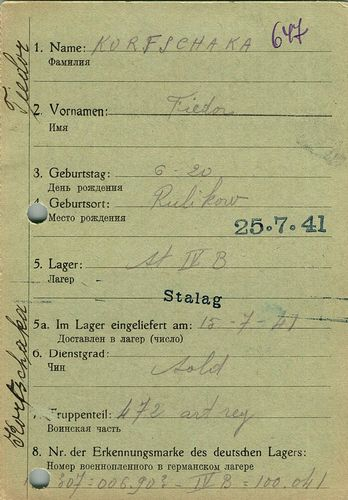 647
1. Name: KURFSCHAKA
Фамилия
2. Vornamen: Fiedor
Имя
3. Geburtstag: 6-20
День рождения
4. Geburtsort: Rulikow
Место рождения
25.7.41
5. Lager: St IV B
Лагерь
Stalag
5a. Im Lager eingeliefert am: 15-7-41
Доставлен в лагерь (число)
6. Dienstgrad: Sold
Чин
7. Truppenteil: 472 art reg
Воинская часть
8. Nr. der Erkennungsmarke des deutschen Lagers:
Номер военнопленного в германском лагере
307=006.903-IV B=100.041
Fiedor
Korfschaka